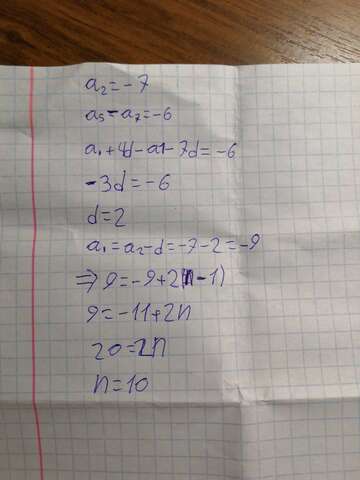 a₂=-7
a₅-a₇=-6
a₁+4d-a1-7d=-6
-3d=-6
d=2
a₁=a₂-d=-7-2=-9
⇒9=-9+2(n-1)
9=-11+2n
20=2n
n=10